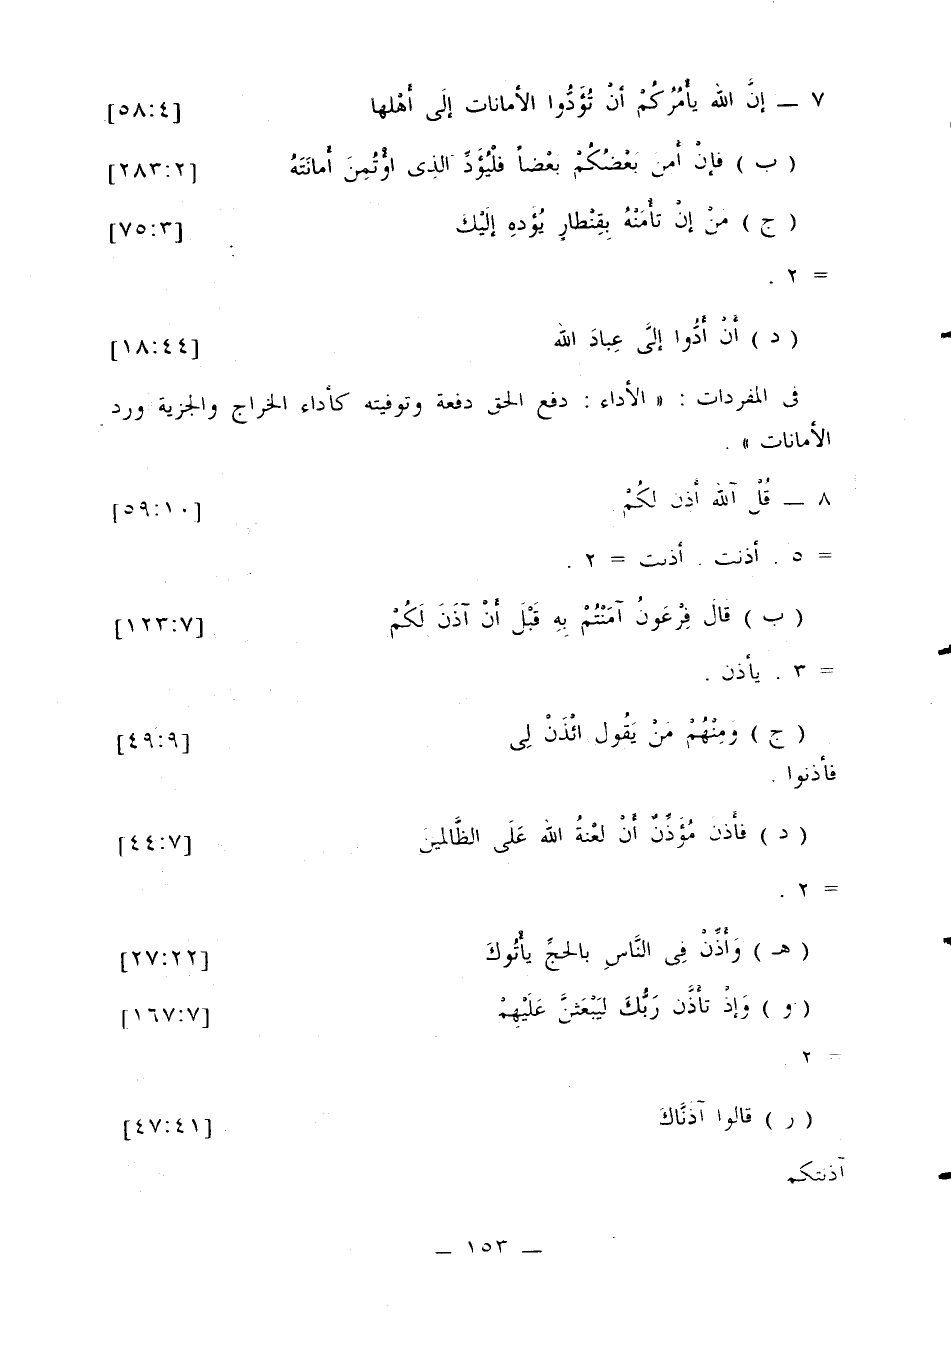 ٧ ــ إنَّ الله يأمُرُكُمْ أنْ تُؤَدُّوا الأمانات إلَى أَهْلها [٥٨:٤]
( ب ) فإنْ أَمن بَعْضُكُمْ بعْضاً فلْيُؤَدِّ الذِى اؤْتُمِنَ أَمانَتَهُ [٢٨٣:٢]
( ج ) منْ إنْ تأْمَنْهُ بِقِنْطارٍ يُؤَدهِ إلَيْكَ [٧٥:٣]
= ٢ .
( د ) أَنْ أَدُّوا إلىَّ عِبادَ الله [١٨:٤٤]
فى المفردات : « الأداء : دفع الحق دفعة وتوفيته كأداء الخراج والجزية ورد
الأمانات » .
٨ ــ قُلْ آلله أَذن لكُمْ [٥٩:١٠]
= ٥ . أذنت . أذنت = ٢ .
( ب ) قالَ فِرْعَونُ آمَنْتُمْ بِهِ قَبْلَ أَنْ آذَنَ لَكُمْ [١٢٣:٧]
= ٣ . يأذن .
( ج ) ومِنْهُمْ مَنْ يَقُول ائْذَنْ لِى [٤٩:٩]
فأذنوا .
( د ) فأَذن مُؤَذِّنٌ أَنْ لعْنةُ الله عَلَى الظَّالمين [٤٤:٧]
= ٢ .
( هـ ) وَأَذِّنْ فِى النَّاسِ بالحجِّ يأْتُوكَ [٢٧:٢٢]
( و ) وَإذْ تأَذَّن رَبُّكَ ليَبْعَثنَّ عَلَيْهِمْ [١٦٧:٧]
= ٢
( ر ) قالوا آذنَّاكَ [٤٧:٤١]
آذنتكم
ــ ١٥٣ ــ